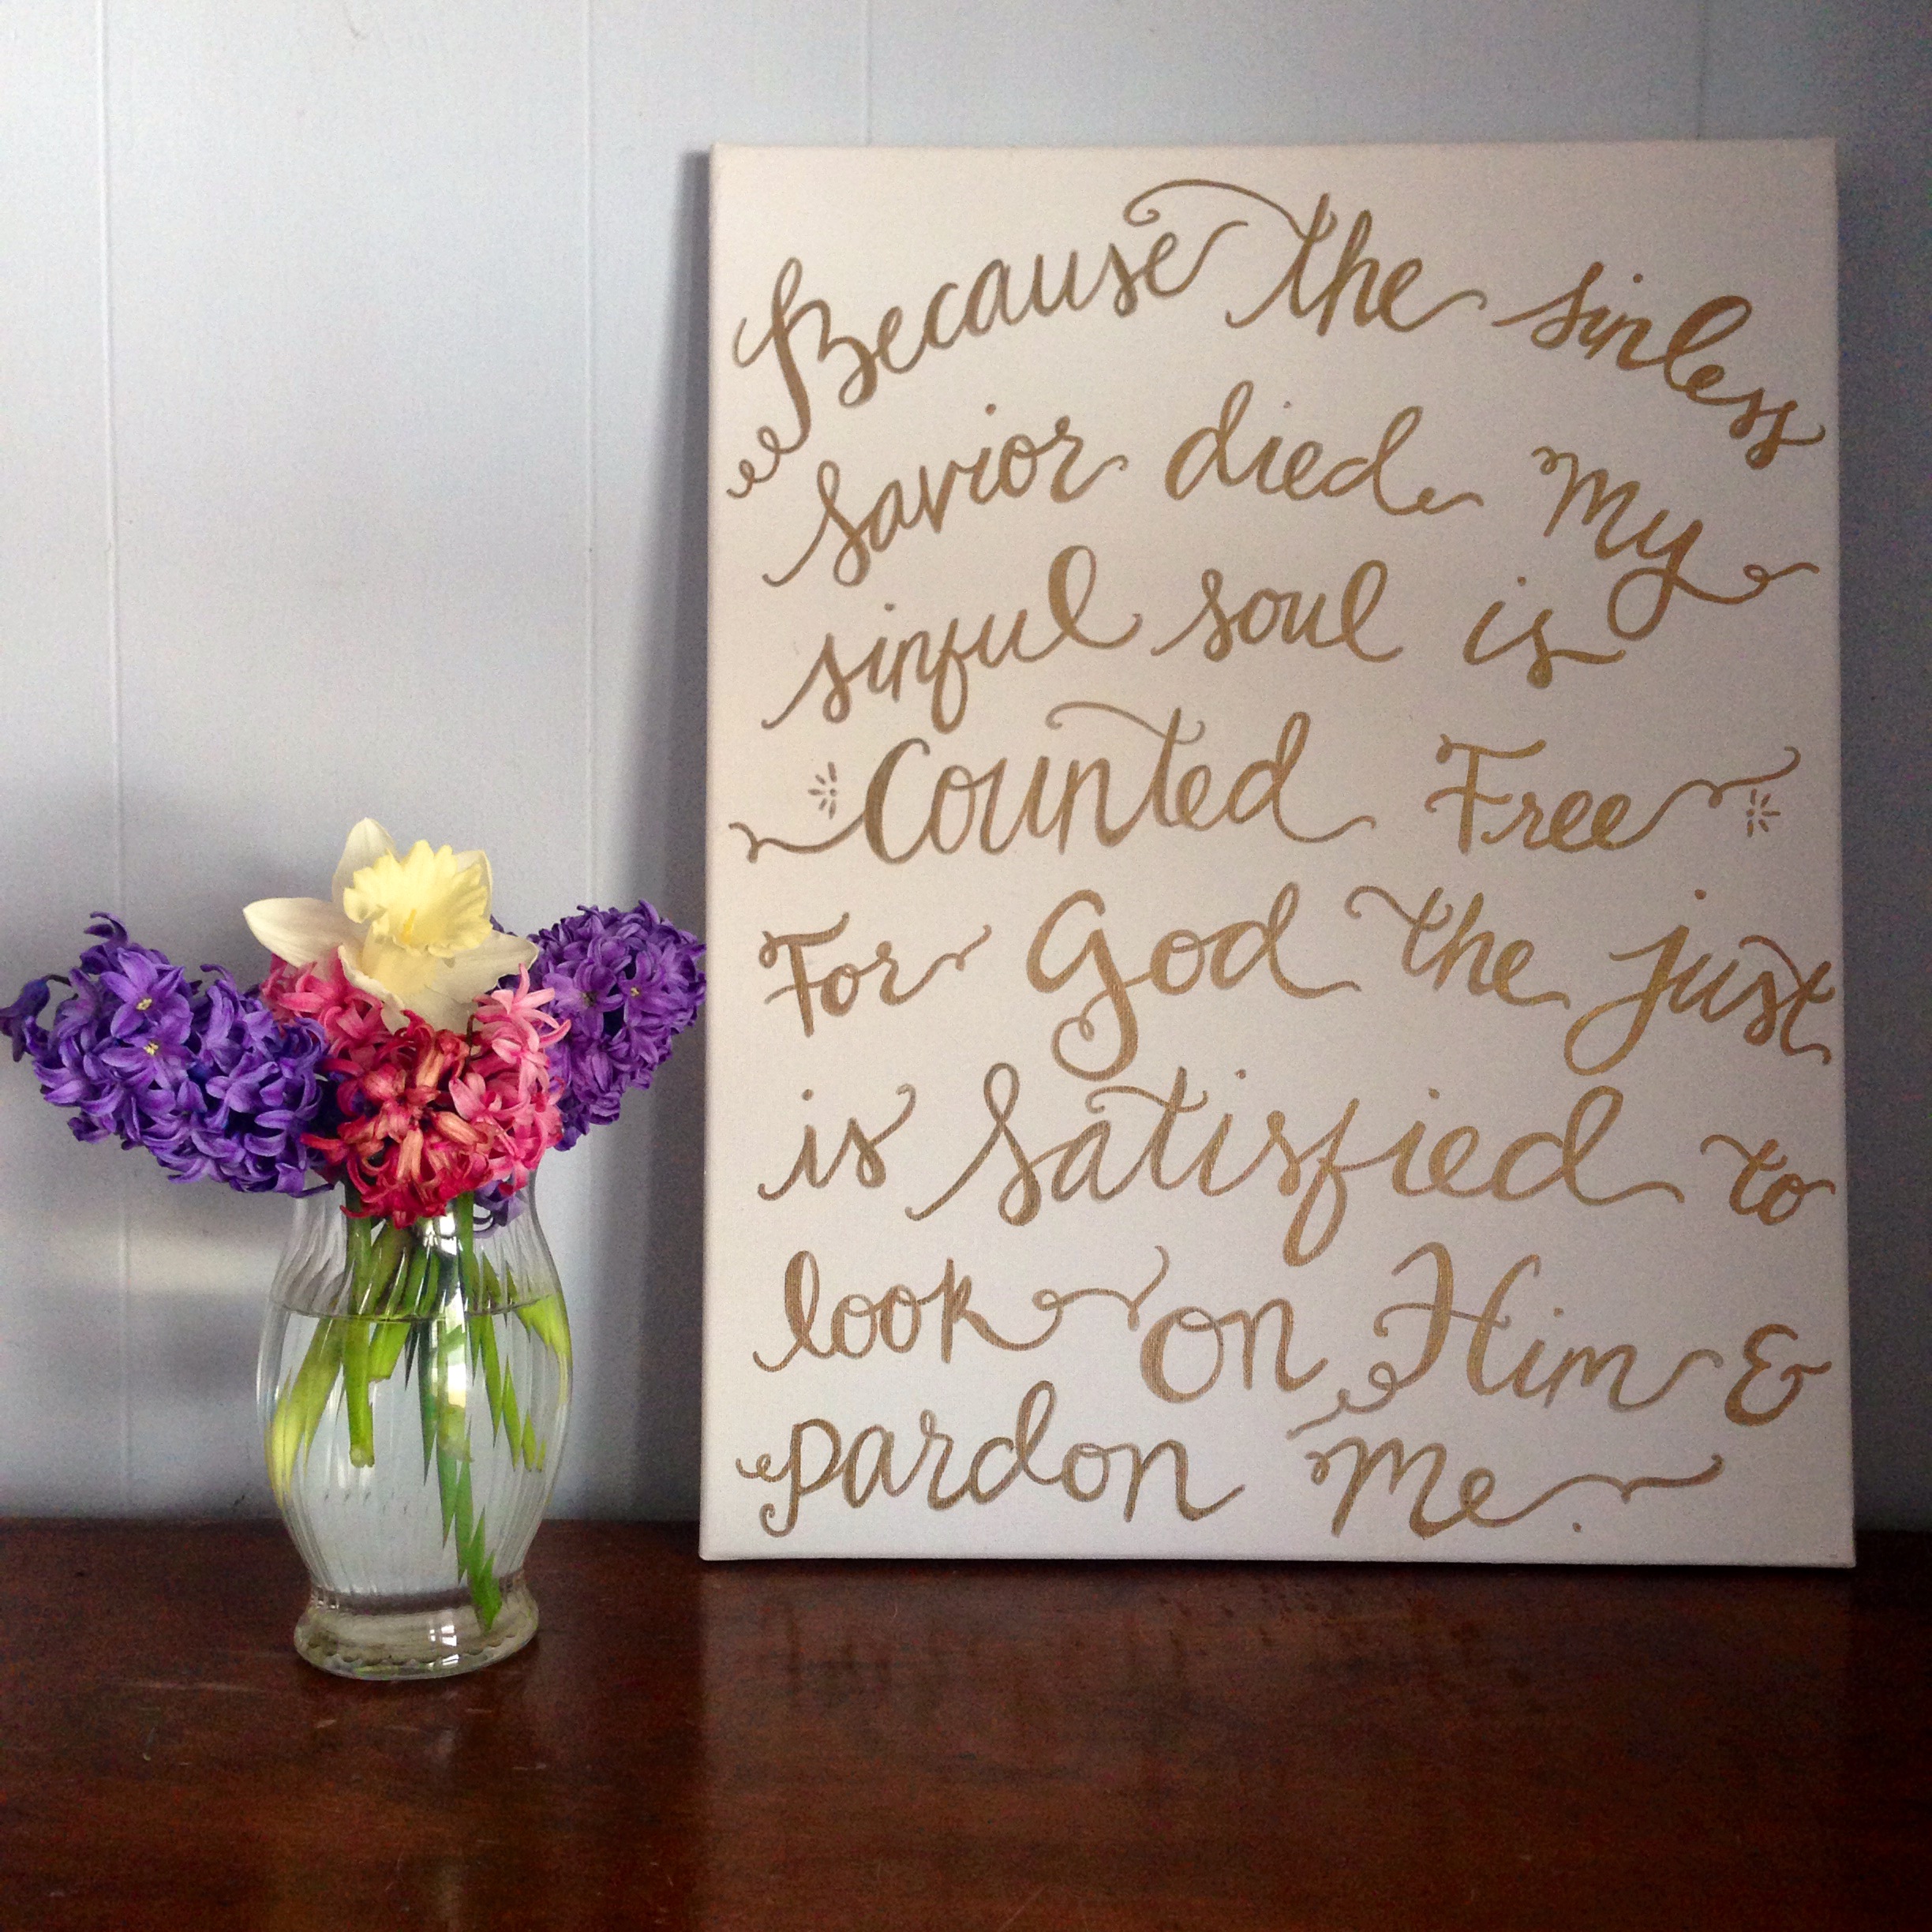 Because the sinless
savior died My
sinful soul is
Counted Free
For God the just
is satisfied to
look on Him &
pardon Me.